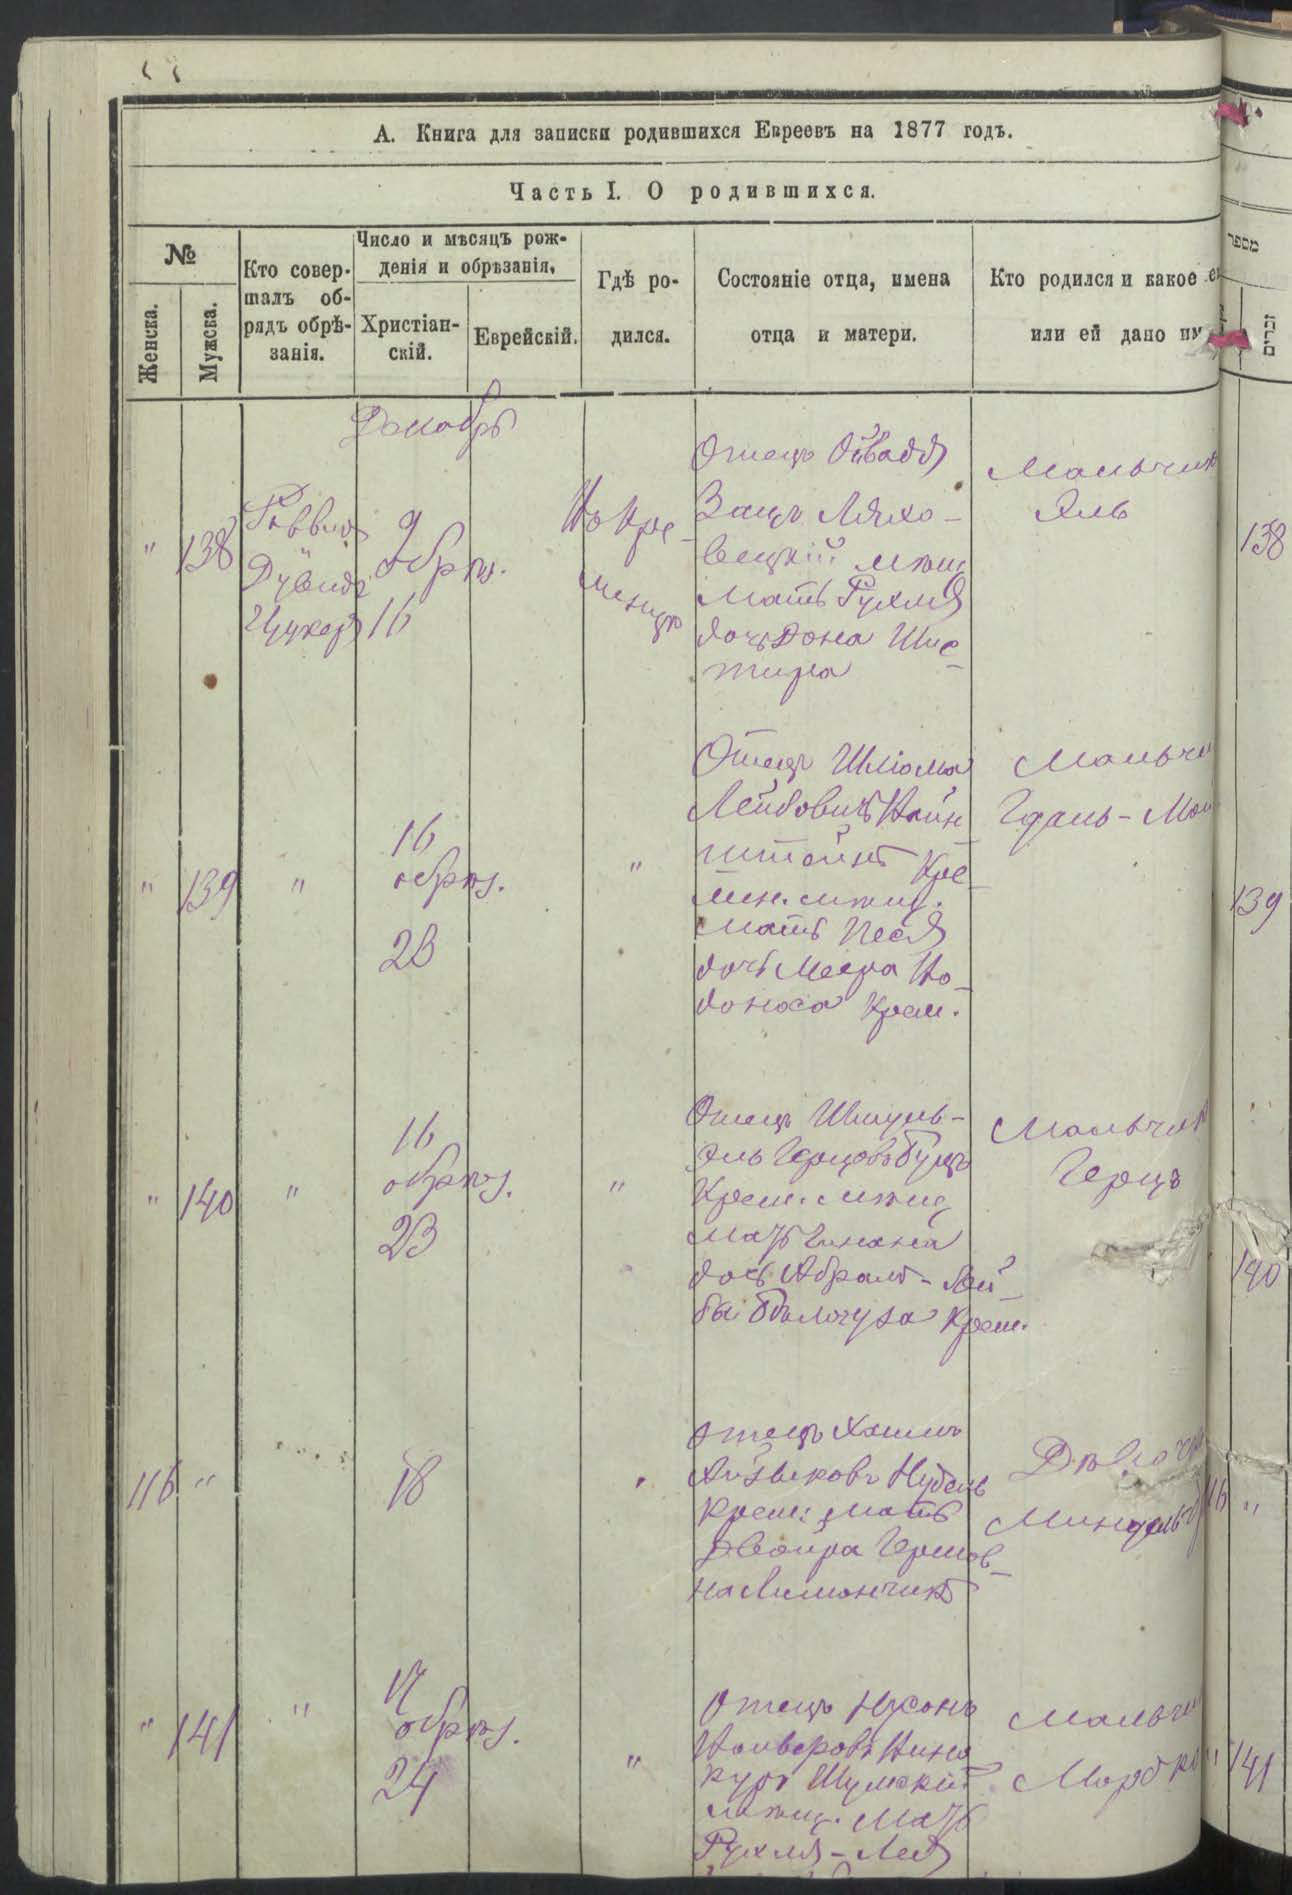 А. Книга для записки родившихся Евреевъ на 1877 годъ.
Часть I. О родившихся.
№
Женска.
Мужска.
Кто совер-
шалъ об-
рядъ обрѣ-
занія.
Число и мѣсяцъ рож-
денія и обрѣзанія,
Христіан-
скій.
Еврейскій.
Гдѣ ро-
дился.
Состояніе отца, имена
отца и матери.
Кто родился и какое
или ей дано
מספר
זכרים
Декабрь
" 138
Раввинъ
Дувидъ
Цукеръ
9
обрѣз.
16
Въ Кре-
менцѣ
Отецъ
Ляхо-
вецкій мѣщ
Мать Рухля
дочь
Мальчикъ
Эль
138
" 139 "
16
обрѣз.
23
"
Отецъ Шлiома
Лейбовичъ Вайн
штейнъ Кре-
мен. мѣщ.
Мать Песя
дочь Меера Во-
доноса Крем.
Мальчи
139
" 140 "
16
обрѣз.
23
"
Отецъ Шмуль-
Эль Герцовъ
Крем. мѣщ
Мать
дочь Абрамъ-Лей-
бы Крем.
Мальчик
Герцъ
140
116 "
18
Отецъ Хаимъ
Айзыковъ Нудель
Крем: Мать
Двойра Гершов-
на Лимончикъ
116 "
" 141 "
17
обрѣз.
24
"
Отецъ Нусонъ
Вольвовъ Вино
куръ Шумскій
мѣщ. Мать
Рухля-Лея
Мальчи
" 141